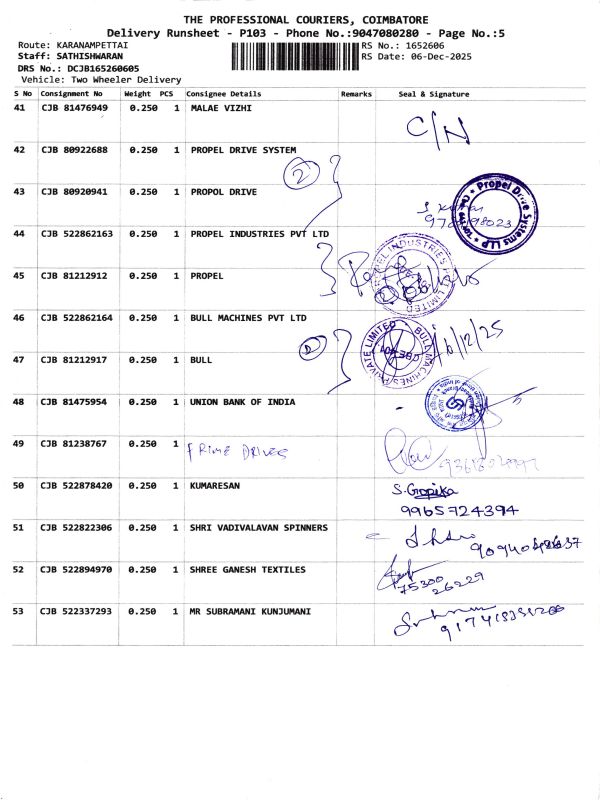 THE PROFESSIONAL COURIERS, COIMBATORE
Delivery Runsheet - P103 - Phone No.:9047080280 - Page No.:5
Route: KARANAMPETTAI RS No.: 1652606
Staff: SATHISHWARAN RS Date: 06-Dec-2025
DRS No.: DCJB165260605
Vehicle: Two Wheeler Delivery
S No Consignment No Weight PCS Consignee Details Remarks Seal & Signature
41 CJB 81476949 0.250 1 MALAE VIZHI C/N
42 CJB 80922688 0.250 1 PROPEL DRIVE SYSTEM
2
43 CJB 80920941 0.250 1 PROPOL DRIVE
Propel Drive Systems LLP
44 CJB 522862163 0.250 1 PROPEL INDUSTRIES PVT LTD
PROPEL INDUSTRIES PVT LIMITED
45 CJB 81212912 0.250 1 PROPEL
46 CJB 522862164 0.250 1 BULL MACHINES PVT LTD
BULL MACHINES PRIVATE LIMITED
47 CJB 81212917 0.250 1 BULL
48 CJB 81475954 0.250 1 UNION BANK OF INDIA
49 CJB 81238767 0.250 1 PRIME DRIVES
50 CJB 522878420 0.250 1 KUMARESAN S. Gopika
9965724394
51 CJB 522822306 0.250 1 SHRI VADIVALAVAN SPINNERS
52 CJB 522894970 0.250 1 SHREE GANESH TEXTILES
75300
26229
53 CJB 522337293 0.250 1 MR SUBRAMANI KUNJUMANI